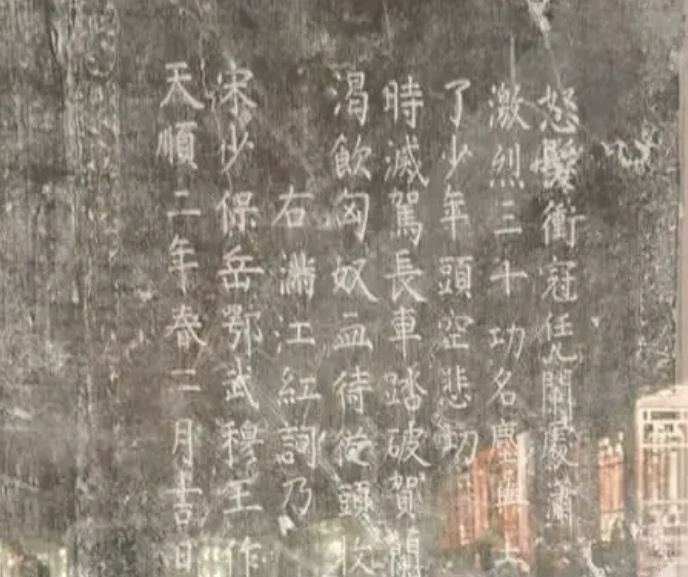 怒髮衝冠凭闌處蕭
激烈三十功名塵與土
了少年頭空悲切
時滅駕長車踏破賀蘭
渴飲匈奴血待從頭收
右滿江紅詞乃
宋少保岳鄂武穆王作
天順二年春二月吉日